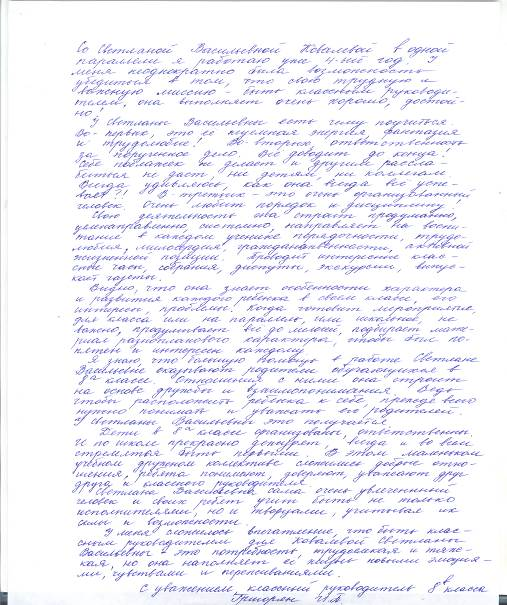 Со Светланой Васильевной Ковалевой в одной
параллели я работаю уже 4-ый год. У
меня неоднократно была возможность
убедиться в том, что свою трудную и
важную миссию - быть классным руководи-
телем, она выполняет очень хорошо, достой-
но!
У Светланы Васильевны есть чему поучиться
Во-первых, это её неуёмная энергия, фантазия
и трудолюбие! Во-вторых ответственность
за порученное дело. Всё доводит до конца!
Себе поблажек не делает и другим рассла-
биться не даст, ни детям, ни коллегам.
Всегда удивляюсь, как она везде всё успе-
вает?! В третьих - это очень организованный
человек. Очень любит порядок и дисциплину!
Свою деятельность она строит продуманно,
целенаправленно, системно, направляет на воспи-
тание в каждом ученике порядочности, трудо-
любия, милосердия, гражданственности, активной
жизненной позиции. Проводит интересные клас-
сные часы, собрания, диспуты, экскурсии, выпус-
кает газеты.
Видно, что она знает особенности характера
и развития каждого ребенка в своём классе, его
интересы, проблемы. Когда готовит мероприятие
для класса или на параллель, или школьное, не
важно, продумывает всё до мелочей, подбирает мате-
риал разнопланового характера, чтобы было по-
нятно и интересно каждому.
Я знаю, что большую помощь в работе Светлане
Васильевне оказывают родители обучающихся в
8 классе. Отношения с ними она строит
на основе дружбы и взаимопонимания. Ведь
чтобы расположить ребёнка к себе прежде всего
нужно понимать и уважать его родителей.
У Светланы Васильевны это получается.
Дети в 8 классе организованы, ответственны.
И по школе прекрасно дежурят, всегда и во всем
стремятся быть первыми. В этом маленьком
учебном дружном коллективе сложились добрые отно-
шения, ребята понимают, доверяют, уважают друг
друга и классного руководителя.
Светлана Васильевна сама очень увлеченный
человек и своих ребят учит быть не только
исполнителями, но и творцами, учитывая их
силы и возможности.
У меня сложилось впечатление, что быть клас-
сным руководителем для Ковалевой Светланы
Васильевны - это потребность, трудоёмкая и тяже-
лая, но она наполняет её жизнь новыми эмоция-
ми, чувствами и переживаниями.
С уважением, классный руководитель 8 класса
Григорян